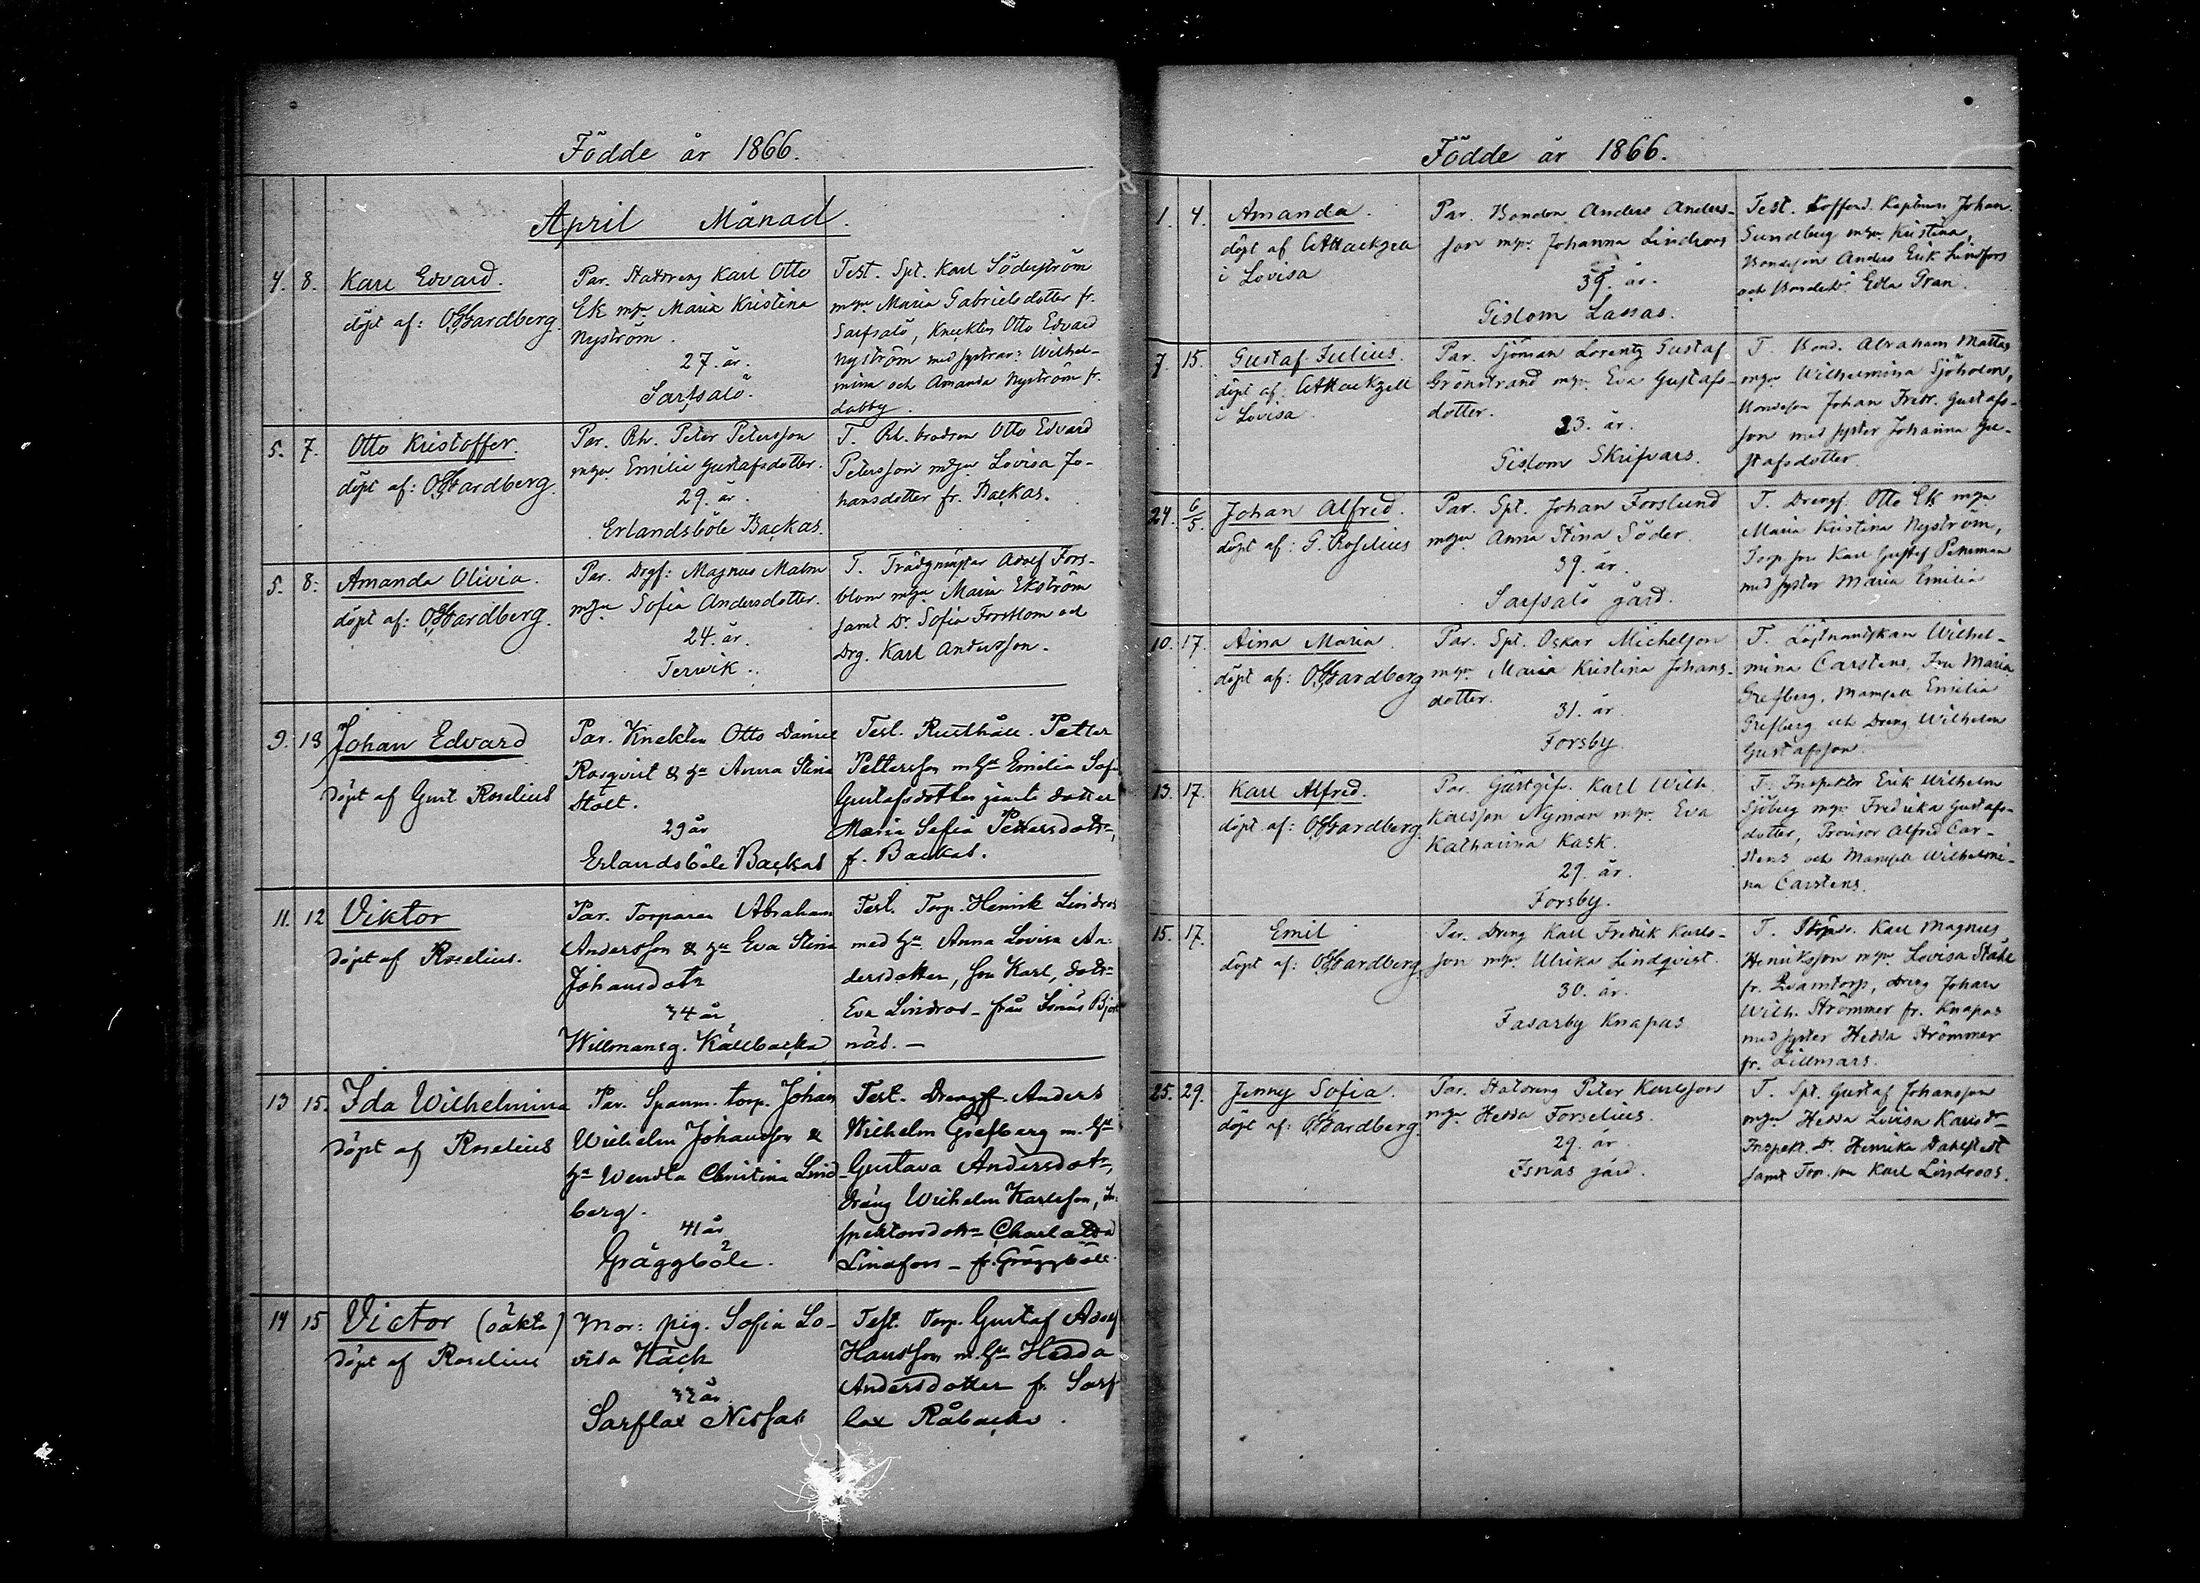 Födde år 1866.
April Månad.
4. 8. Karl Edvard.
döpt af: O. Hardberg.
Par. Statdreng Karl Otto
Ek m hu Maria Kristina
Nyström.
27. år.
Sarfsalö.
Test. Spt. Karl Söderström
m hu Maria Gabrielsdotter fr.
Sarfsalö, Knekten Otto Edvard
Nyström med systrar: Wilhel-
mina och Amanda Nyström fr.
dabby.
5. 7. Otto Kristoffer.
döpt af: O. Hardberg.
Par. Rh. Peter Petersson
m hu Emilie Gustafsdotter.
29. år.
Erlandsböle Backas.
T. Rh. brodren Otto Edvard
Petersson m hu Lovisa Jo-
hansdotter fr. Backas.
5. 8. Amanda Olivia.
döpt af: O. Hardberg.
Par. Drgf: Magnus Malm
m hu Sofia Andersdotter.
24. år.
Terwik.
T. Trädgmästar Adolf Fors-
blom m hu Maria Ekström
samt Dr. Sofia Forsblom och
Drg. Karl Andersson.
9. 13 Johan Edvard
Döpt af Gust Roselius
Par. Knekten Otto Daniel
Rosqvist & hu Anna Stina
Stolt.
29 år
Erlandsböle Backas
Test. Rusthåll. Petter
Pettersson m hu Emilia Sof.
Gustafsdotter jemte dotter
Maria Sofia Pettersdotr,
f. Backas.
11. 12 Viktor
Döpt af Roselius.
Par. Torparen Abraham
Andersson & hu Eva Stina
Johansdotr
34 år
Willmansg. Källbacka
Test. Torp. Henrik Lindros
med hu Anna Lovisa An-
dersdotter, son Karl, dotr
Eva Lindros - från Isnäs Björk
näs. -
13 15. Ida Wilhelmina
Döpt af Roselius
Par. Spanm. torp. Johan
Wilhelm Johansson &
hu Wendla Christina Lind
berg.
41 år
Gräggböle.
Test. Drengf Anders
Wilhelm Grefberg m. hu
Gustava Andersdotr,
dräng Wilhelm Karlsson, In-
spektorsdotr Charlotta
Lindfors - fr. Gräggböle.
14 15 Victor (oäkta)
Döpt af Roselius
Mor: pig. Sofia Lo-
visa Käck
32 år
Sarflax Nissas
Test. Torp. Gustaf Adolf
Hansson m. hu Hedda
Andersdotter fr. Sarf
lax Råbacka.
Födde år 1866.
1. 4. Amanda.
döpt af Attackzell
i Lovisa
Par. Bonden Anders Anders-
son m hu Johanna Lindroos
39. år.
Gislom Lassas.
Test. Kofferd. Kaptenen Johan
Sundberg m hu Kristina,
Bondeson Anders Erik Lindfors
och Bondedr. Edla Gran.
7. 15. Gustaf Julius.
döpt af: Attackzell
i Lovisa.
Par. Sjöman Lorentz Gustaf
Grönstrand m hu Eva Gustafs-
dotter.
23. år.
Gislom Skrifvars.
T. Bond. Abraham Mattas
m hu Wilhelmina Sjöholm,
Bondeson Johan Fredr. Gustafs-
son med syster Johanna Gu-
stafsdotter.
24. 6/5 Johan Alfred.
döpt af: G. Roselius
Par. Spt. Johan Forslund
m hu Anna Stina Söder.
39. år.
Sarfsalö gård.
T. Drengf. Otto Ek m hu
Maria Kristina Nyström,
Torp son Karl Gustaf
med syster Maria Emilia
10. 17. Aina Maria.
döpt af: O. Hardberg
Par. Spt. Oskar Michelson
m hu Maria Kristina Johans-
dotter.
31. år.
Forsby.
T. Löjtnantskan Wilhel-
mina Carstens, Fru Maria
Grefberg, Mamsell Emilia
Grefberg och Dreng Wilhelm
Gustafsson.
13. 17. Karl Alfred.
döpt af: O. Hardberg.
Par. Gästgifv. Karl Wilh.
Karlsson Nyman m hu Eva
Katharina Kask.
29. år.
Forsby.
T. Inspektor Erik Wilhelm
Sjöberg m hu Fredrika Gustafs-
dotter, Provisor Alfred Car-
stens och Mamsell Wilhelmi-
na Carstens.
15. 17. Emil
döpt af: O. Hardberg
Par. Dreng Karl Fredrik Karls-
son m hu Ulrika Lindqvist.
30. år.
Fasarby Knapas
T. Karl Magnus
Henriksson m hu Lovisa Ståhl
fr. Qvarntorp, dreng Johan
Wilh. Strömmer fr. Knapas
med syster Hedda Strömmer
fr. Lillmars.
25. 29. Jenny Sofia.
döpt af: O. Hardberg.
Par. Statdreng Peter Karlsson
m hu Hedda Forselius.
29. år.
Isnäs gård.
T. Spt. Gustaf Johansson
m hu Hedda Lovisa Karlsdr
Inspekt. Dr. Henrika Dahlqvist
samt Tor. son Karl Lindroos.